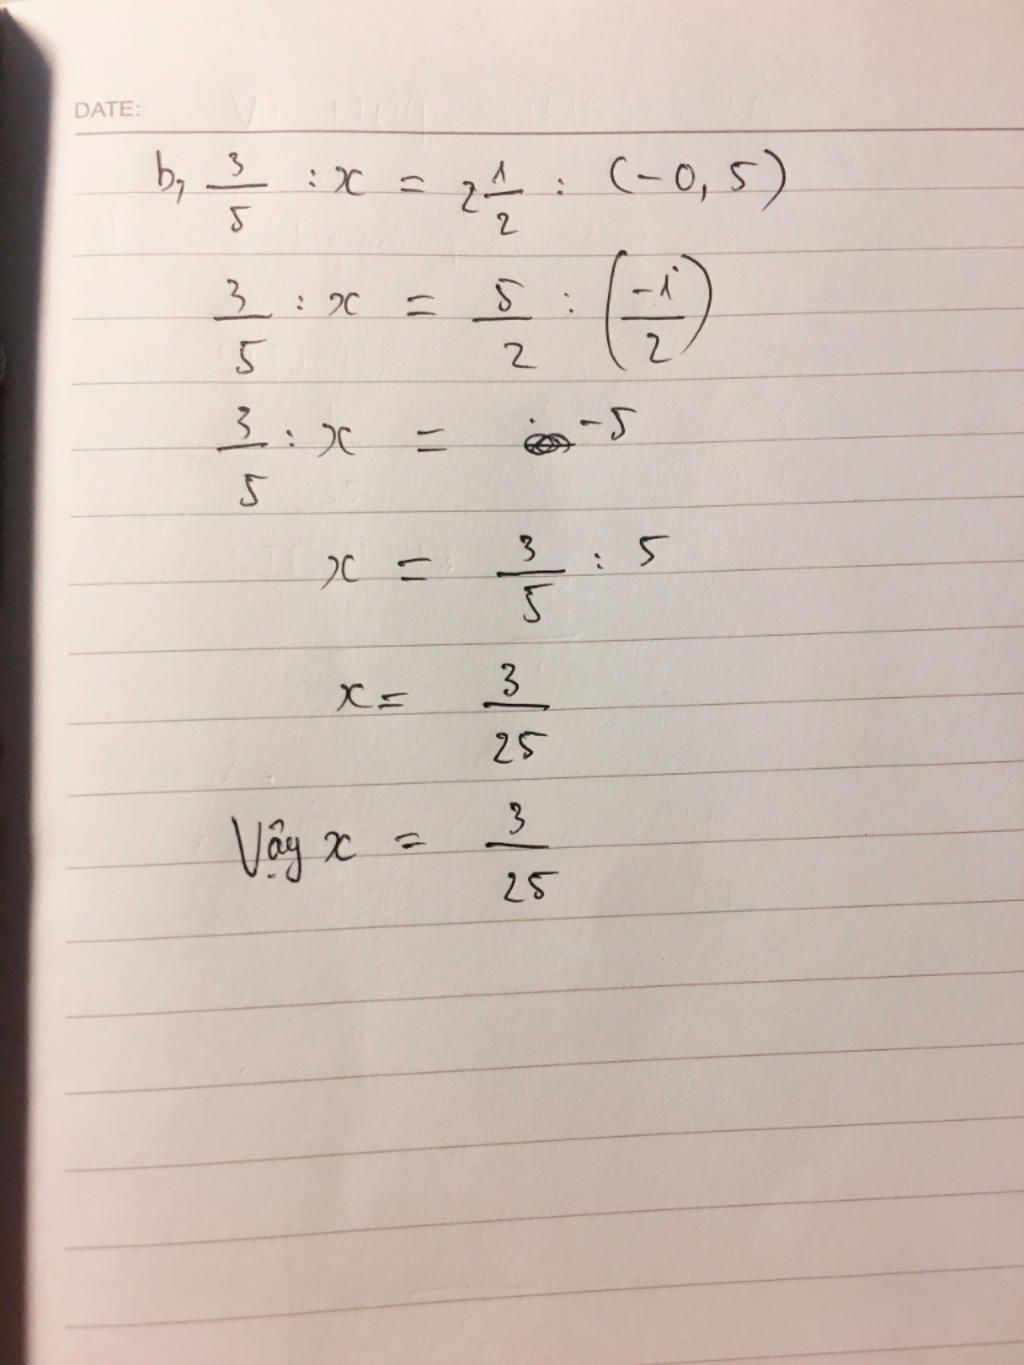 DATE:
b, 3/5 : x = 2 1/2 : (-0,5)
3/5 : x = 5/2 : (-1/2)
3/5 : x = -5
x = 3/5 : 5
x = 3/25
Vậy x = 3/25